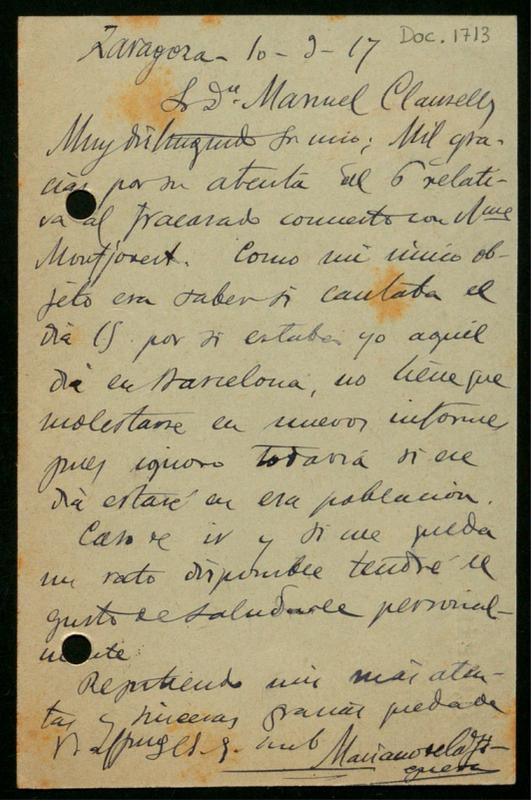 Doc. 1713
Zaragoza - 10 - 9 - 17
Sr Dn. Manuel Clausells
Muy distinguido Sr mio; Mil gra-
cias por su atenta del 6 relati-
va al fracasado concierto con Mme
Montjovet. Como mi único ob-
jeto era saber si cantaba el
dia 15 por si estaba yo aquel
dia en Barcelona, no tiene que
molestarse en nuevos informes
pues ignoro todavia si ese
dia estaré en esa población.
Caso de ir y si me queda
un rato disponible tendré el
gusto de saludarle personal-
mente
Repitiendo mis más aten-
tas y sinceras gracias queda de
V. affmo s. s.
Mariano de la Fi-
guera